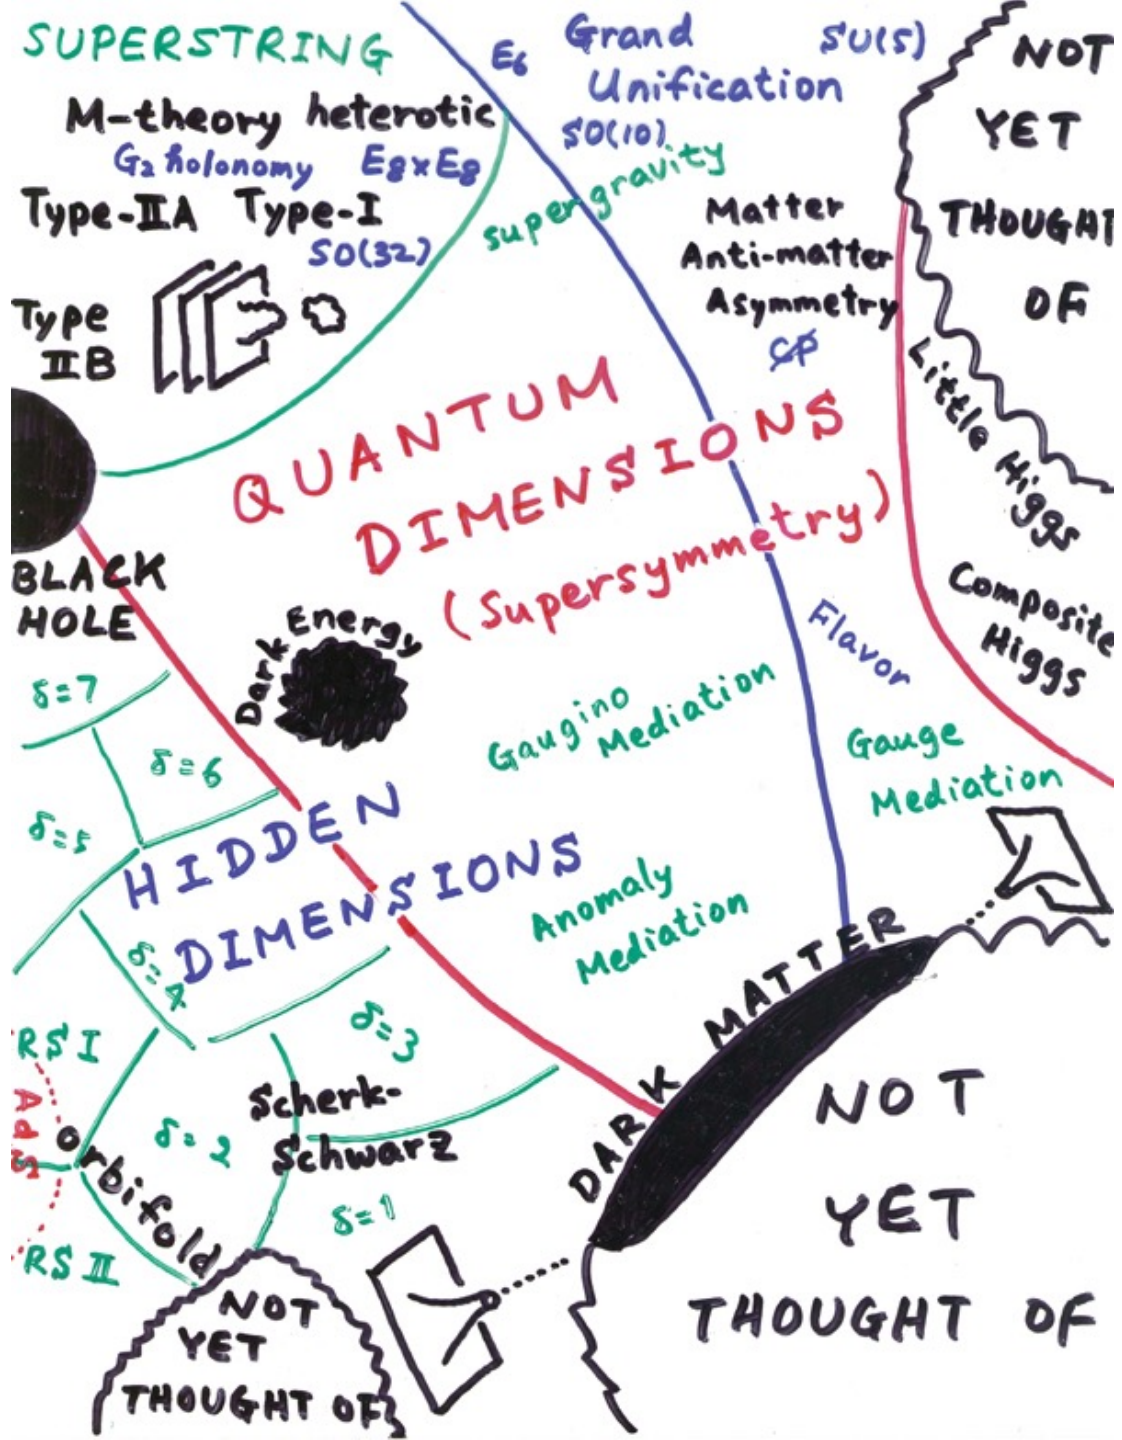 SUPERSTRING
M-theory heterotic
G2 holonomy E8xE8
Type-IIA Type-I
SO(32)
Type
IIB
E6
Grand
Unification
SU(5)
SO(10)
supergravity
Matter
Anti-matter
Asymmetry
CP
NOT
YET
THOUGHT
OF
Little Higgs
Composite
Higgs
QUANTUM
DIMENSIONS
(Supersymmetry)
BLACK
HOLE
Dark Energy
Flavor
Gaugino
Mediation
Gauge
Mediation
Anomaly
Mediation
HIDDEN
DIMENSIONS
δ=7
δ=6
δ=5
δ=4
δ=3
δ=2
δ=1
RS I
AdS
RS II
Orbifold
Scherk-
Schwarz
DARK MATTER
NOT
YET
THOUGHT OF
NOT
YET
THOUGHT OF